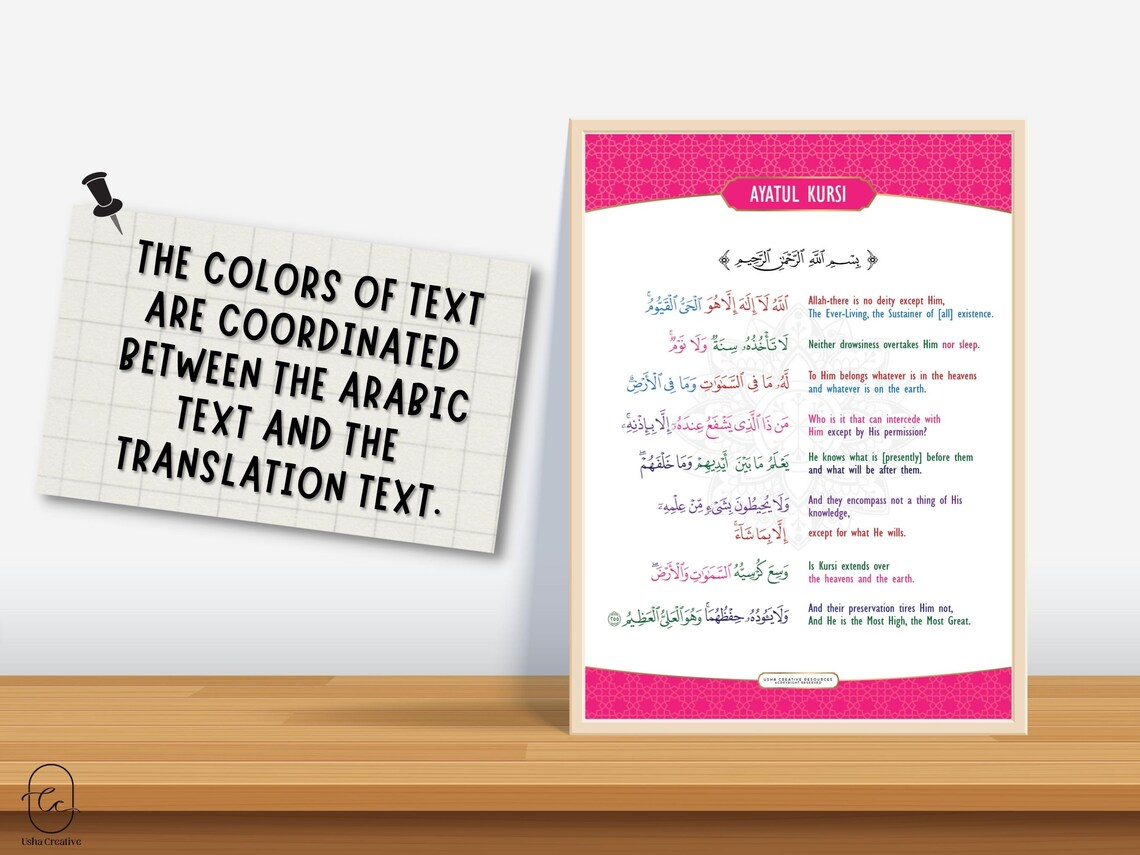 THE COLORS OF TEXT
ARE COORDINATED
BETWEEN THE ARABIC
TEXT AND THE
TRANSLATION TEXT.
Usha Creative
AYATUL KURSI
بِسْمِ ٱللَّهِ ٱلرَّحْمَٰنِ ٱلرَّحِيمِ
ٱللَّهُ لَآ إِلَٰهَ إِلَّا هُوَ ٱلْحَىُّ ٱلْقَيُّومُ ۚ
Allah-there is no deity except Him,
The Ever-Living, the Sustainer of [all] existence.
لَا تَأْخُذُهُۥ سِنَةٌ وَلَا نَوْمٌ ۚ
Neither drowsiness overtakes Him nor sleep.
لَّهُۥ مَا فِى ٱلسَّمَٰوَٰتِ وَمَا فِى ٱلْأَرْضِ ۗ
To Him belongs whatever is in the heavens
and whatever is on the earth.
مَن ذَا ٱلَّذِى يَشْفَعُ عِندَهُۥٓ إِلَّا بِإِذْنِهِۦ ۚ
Who is it that can intercede with
Him except by His permission?
يَعْلَمُ مَا بَيْنَ أَيْدِيهِمْ وَمَا خَلْفَهُمْ ۖ
He knows what is [presently] before them
and what will be after them.
وَلَا يُحِيطُونَ بِشَىْءٍ مِّنْ عِلْمِهِۦٓ
And they encompass not a thing of His
knowledge,
إِلَّا بِمَا شَآءَ ۚ
except for what He wills.
وَسِعَ كُرْسِيُّهُ ٱلسَّمَٰوَٰتِ وَٱلْأَرْضَ ۖ
Is Kursi extends over
the heavens and the earth.
وَلَا يَـُٔودُهُۥ حِفْظُهُمَا ۚ وَهُوَ ٱلْعَلِىُّ ٱلْعَظِيمُ ٢٥٥
And their preservation tires Him not,
And He is the Most High, the Most Great.
USHA CREATIVE RESOURCES
©COPYRIGHT RESERVED